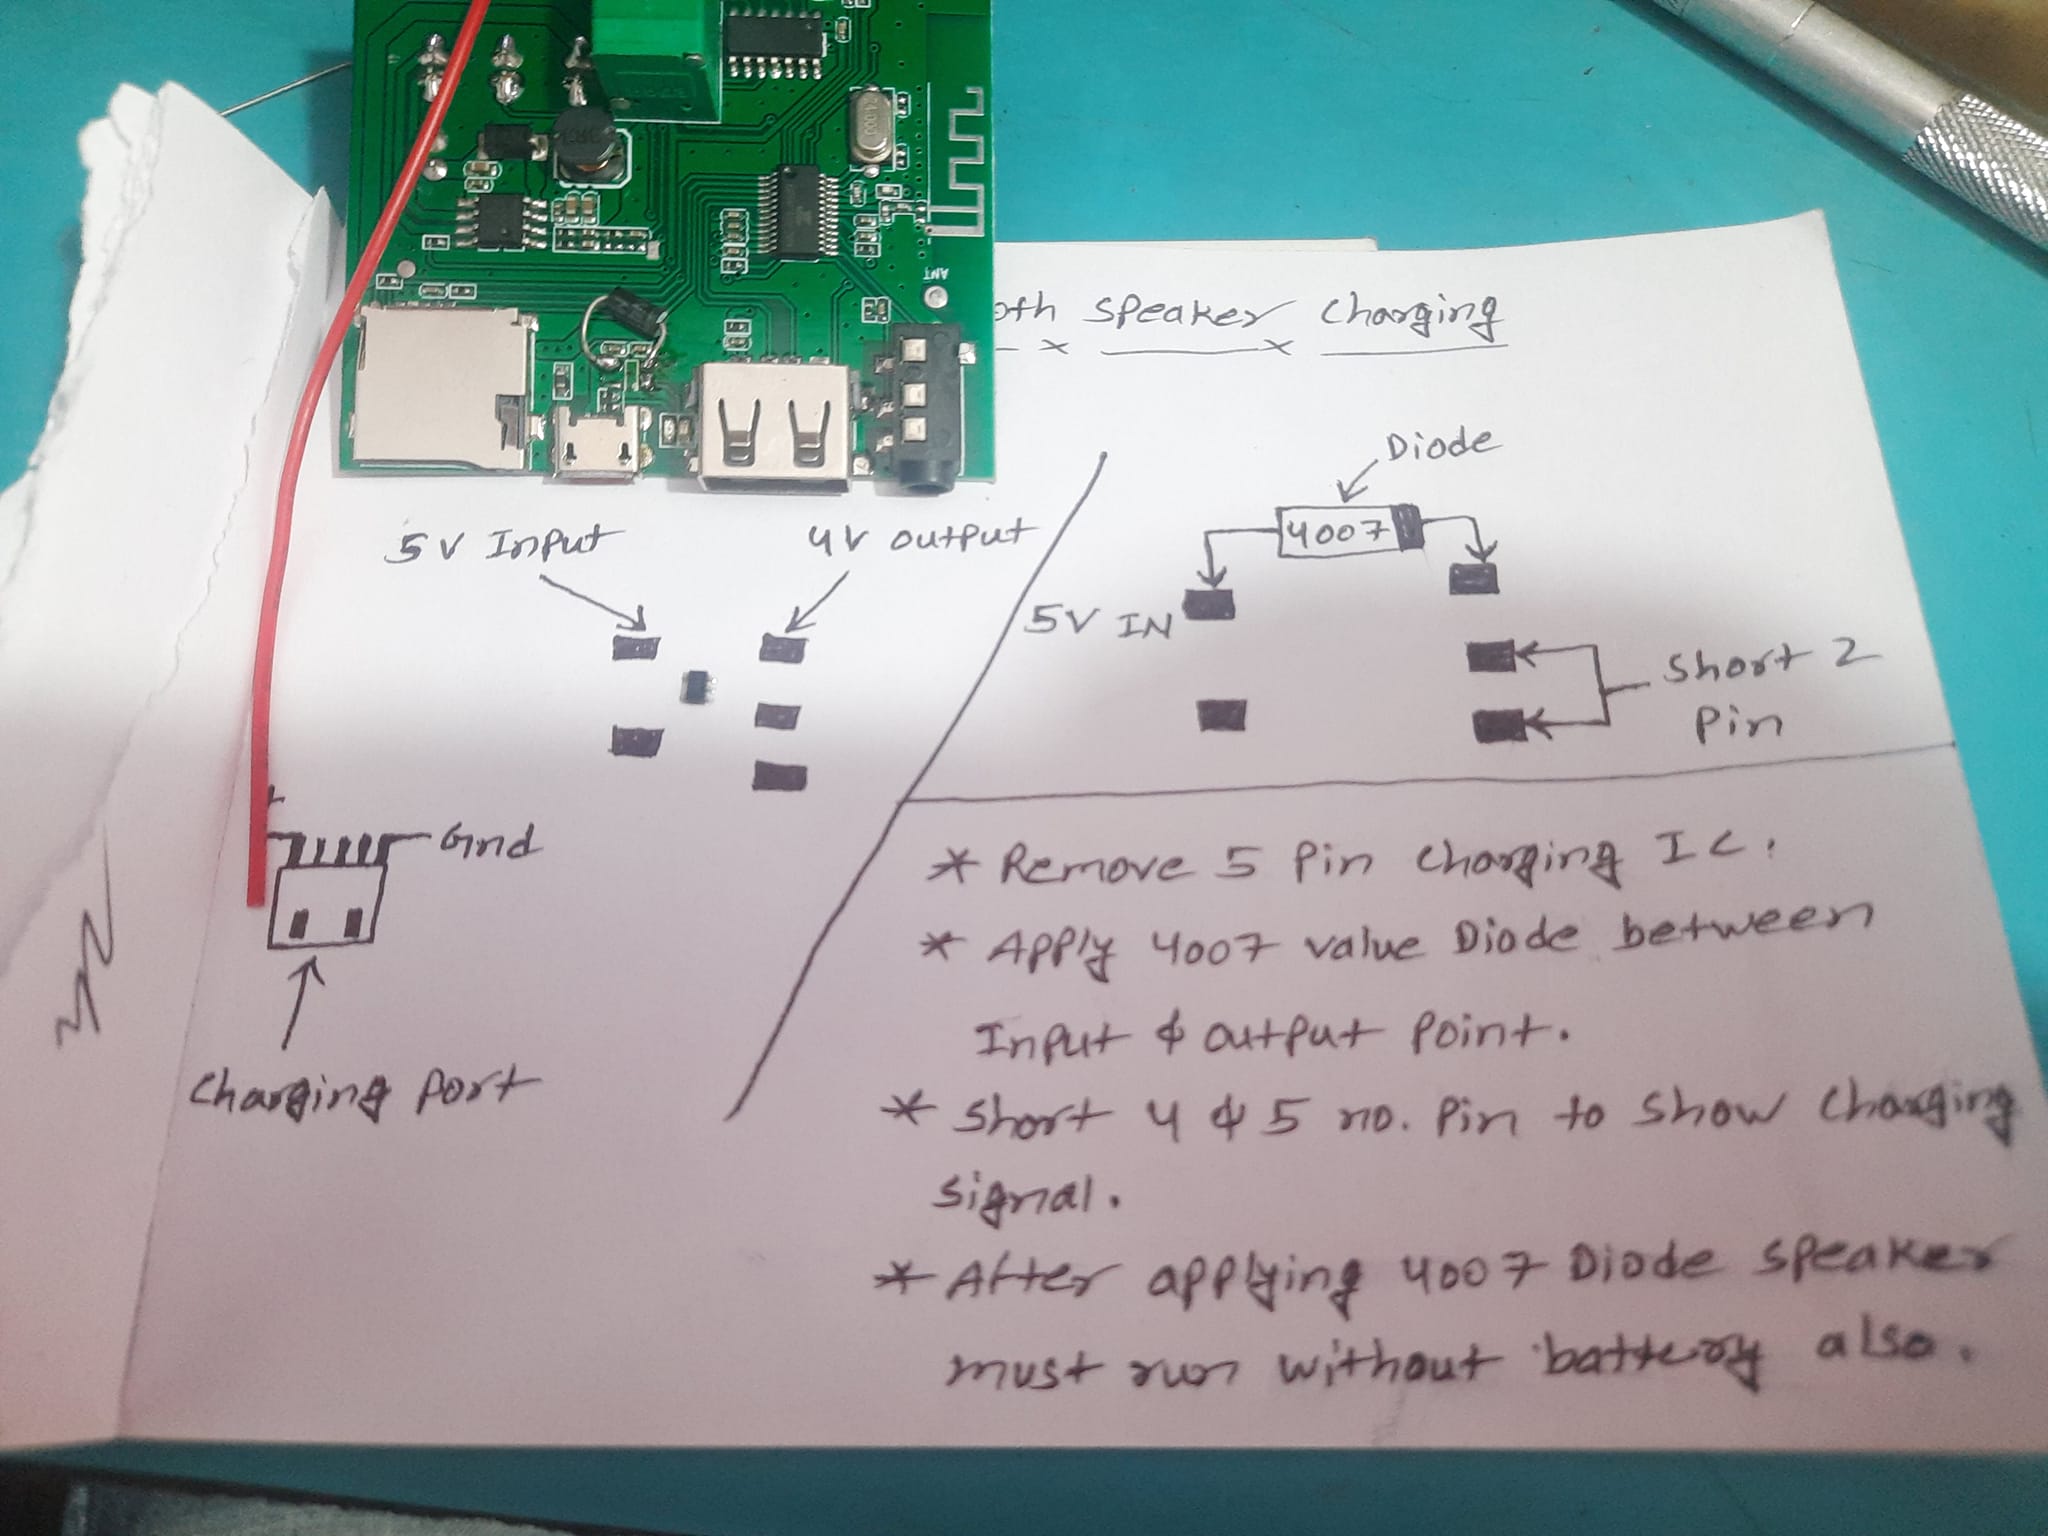 speaker charging
Diode
4007
5V Input
4V output
5V IN
Short 2
Pin
+
Gnd
Charging Port
* Remove 5 Pin Charging IC.
* Apply 4007 value Diode between
Input & output Point.
* Short 4 & 5 no. Pin to show charging
signal.
* After applying 4007 Diode speaker
must run without battery also.
ANT